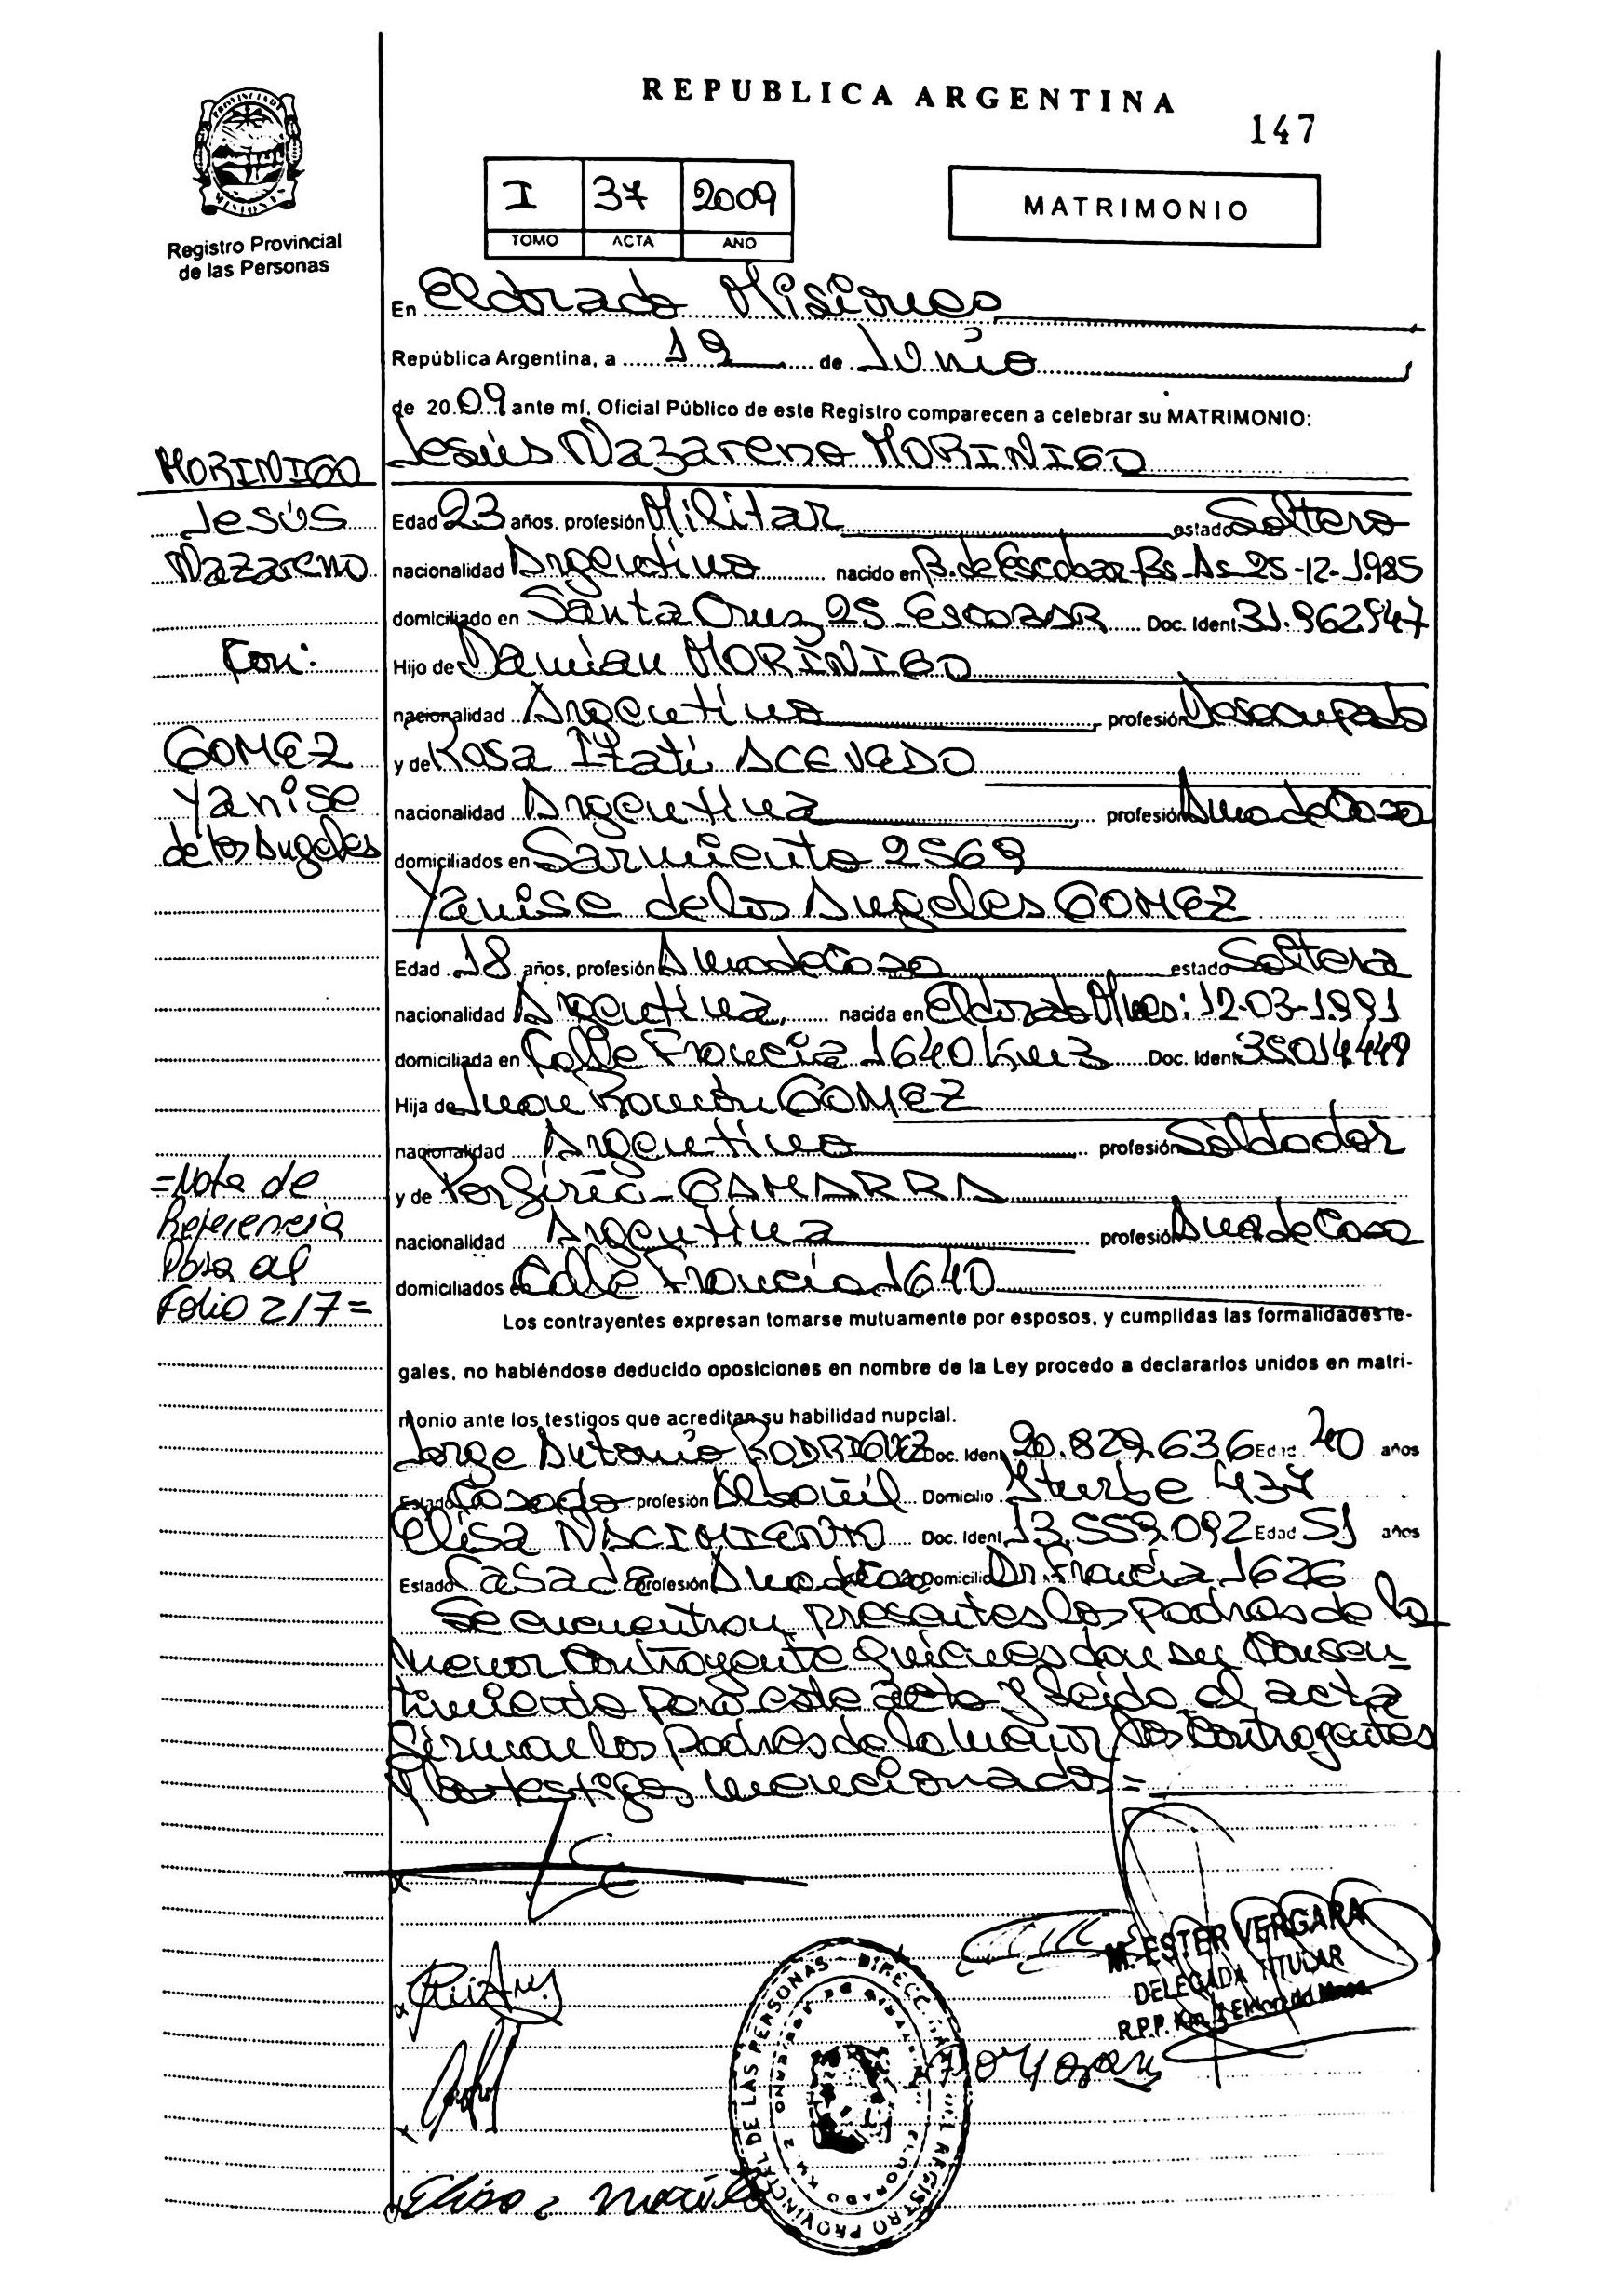 REPUBLICA ARGENTINA
147
I 37 2009
TOMO ACTA AÑO
MATRIMONIO
Registro Provincial
de las Personas
En Eldorado Misiones
República Argentina, a 19 de Junio
de 2009 ante mí, Oficial Público de este Registro comparecen a celebrar su MATRIMONIO:
Jesús Nazareno MORINIGO
Edad 23 años, profesión Militar estado Soltero
nacionalidad Argentino nacido en B. de Escobar Bs. As 25-12-1.985
domiciliado en Santa Cruz 25 Escobar Doc. Ident. 31.962.947
Hijo de Damian MORINIGO
nacionalidad Argentino profesión Desocupado
y de Rosa Itatí ACEVEDO
nacionalidad Argentina profesión Ama de Casa
domiciliados en Sarmiento 2569
Yanise de los Angeles GOMEZ
Edad 18 años, profesión Ama de Casa estado Soltera
nacionalidad Argentina nacida en Eldorado Mnes: 12-03-1.991
domiciliada en Calle Francia 1640 Km 3 Doc. Ident. 35014449
Hija de Juan Ramón GOMEZ
nacionalidad Argentino profesión Soldador
y de Porfiria GAMARRA
nacionalidad Argentina profesión Ama de Casa
domiciliados en Calle Francia 1640
Los contrayentes expresan tomarse mutuamente por esposos, y cumplidas las formalidades le-
gales, no habiéndose deducido oposiciones en nombre de la Ley procedo a declararlos unidos en matri-
monio ante los testigos que acreditan su habilidad nupcial.
Jorge Antonio RODRIGUEZ Doc. Ident. 20.829.636 Edad 40 años
Estado Casado profesión Albañil Domicilio Iturbe 437
Elisa NACIMIENTO Doc. Ident. 13.559.092 Edad 51 años
Estado Casada profesión Ama de Casa Domicilio Dr. Francia 1626
Se encuentran presentes los padres de la
menor contrayente quienes dan su consen-
timiento para este acto y leido el acta
firman los padres de la menor los contrayentes
y los testigos mencionados=
MORINIGO
Jesús
Nazareno
Con:
GOMEZ
Yanise
de los Angeles
=Nota de
Referencia
Pasa al
Folio 217=
M. ESTER VERGARA
DELEGADA TITULAR
R.P.P. Km. 2 Eldorado Mnes.
REGISTRO PROVINCIAL DE LAS PERSONAS - DIRECC
ELDORADO KM 2